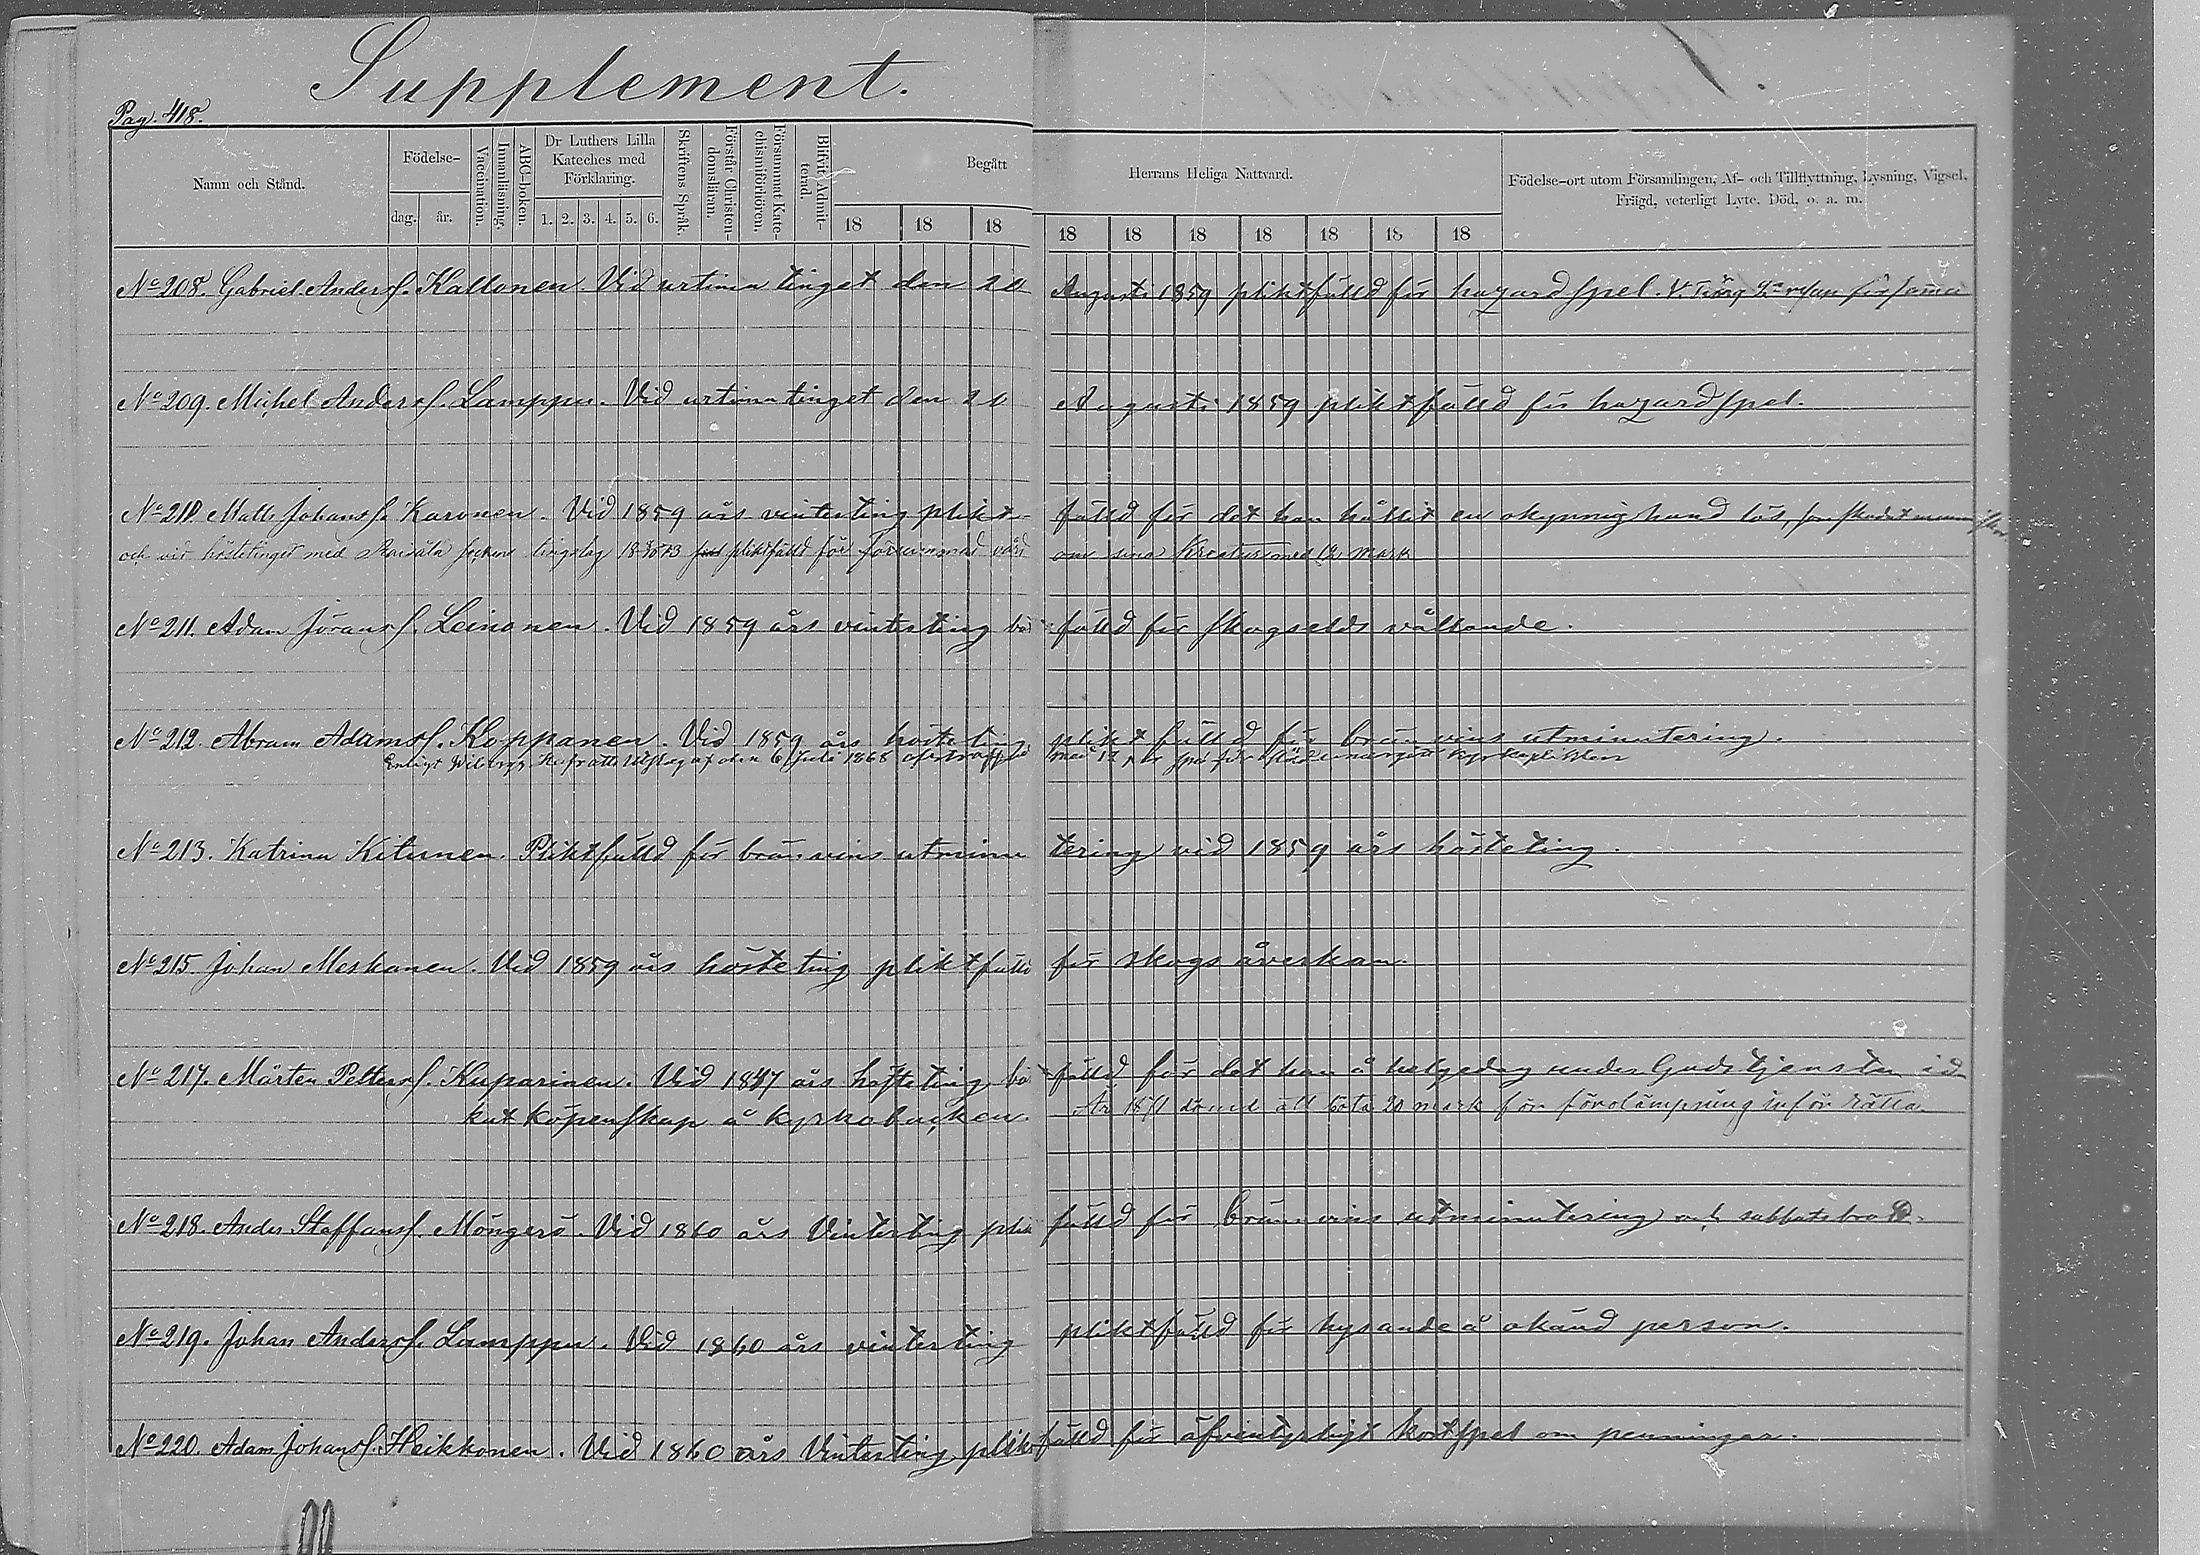 Supplement.
Pag. 418.
Namn och Stånd.
Födelse-
dag. år.
Vaccination.
Innanläsning.
ABC-boken.
Dr Luthers Lilla
Kateches med
Förklaring.
1. 2. 3. 4. 5. 6.
Skriftens Språk.
Förstår Christen-
domsläran.
Försummat Kate-
chismiförhören.
Blifvit Admit-
terad.
Begått
18 18 18
Herrans Heliga Nattvard.
18 18 18 18 18 18 18
Födelse-ort utom Församlingen, Af- och Tillflyttning, Lysning, Vigsel,
Frägd, veterligt Lyte, Död, o. a. m.
No 208. Gabriel Anders. Kallonen. Vid urtima tinget den Augusti 1859 pliktfälld för hazardspel.
No 209. Michel Anders. Lamppu. Vid urtima tinget den Augusti 1859 pliktfälld för hazardspel.
No 210. Matts Johans. Karonen. Vid 1859 års vinterting plikt- fälld för det han hållit en okynnig hund lös,
och vid höstetinget med socken tingslag pliktfälld för försummad vård om sina Kreatur med 12 mark
No 211. Adam Jörans. Leinonen. Vid 1859 års vinterting bö- fälld för skogselds vållande.
No 212. Abram Adams. Koppanen. Vid 1859 års hösteting pliktfälld för bränvins utminutering.
Enligt Wiborgs Hofrätts utslag af den 6 Juli 1868
No 213. Katrina Kitunen. Pliktfälld för bränvins utminu tering vid 1859 års hösteting.
No 215. Johan Meskanen. Vid 1859 års hösteting pliktfälld för skogs åverkan.
No 217. Mårten Petters. Kuparinen. Vid 1847 års hösteting bö- fälld för det han å helgedag under Gudstjensten id-
kat köpenskap å kyrkobacken. År 1871 dömd att böta 20 mark för förolämpning inför rätta
No 218. Anders Staffans. Möngerö. Vid 1860 års Vinterting plikt fälld för bränvins utminutering och sabbatsbrott.
No 219. Johan Anders. Lamppu. Vid 1860 års vinterting pliktfälld för hysande å okänd person.
No 220. Adam Johans. Heikkonen. Vid 1860 års Vinterting plikt fälld för äfventyrligt kortspel om penningar.